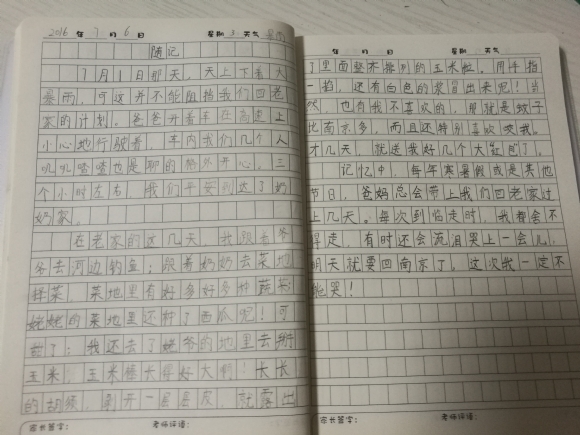 2016 年 7 月 6 日 星期 3 天气 暴雨
随记
7月1日那天，天上下着大
暴雨，可这并不能阻挡我们回老
家的计划。爸爸开着车在高速上
小心地行驶着，车内我们几个人
叽叽喳喳也是聊的格外开心。三
个小时左右，我们平安到达了奶
奶家。
在老家的这几天，我跟着爷
爷去河边钓鱼；跟着奶奶去菜地
择菜，菜地里有好多好多种蔬菜
姥姥的菜地里还种了西瓜呢！可
了；我还去了姥爷的地里去掰
玉米，玉米棒长得好大啊！长长
的胡须，剥开一层层皮，就露出
家长签字： 老师评语：
年 月 日 星期 天气
了里面整齐排列的玉米粒。用手指
一掐，还有白色的浆冒出来呢！当
然，也有我不喜欢的，那就是蚊子
比南京多，而且还特别喜欢咬我。
才几天，就送我好几个大红包了。
记忆中，每年寒暑假或是其他
节日，爸妈总会带上我们回老家过
上几天。每次到临走时，我都舍不
得走，有时还会流泪哭上一会儿，
明天就要回南京了，这次我一定不
哭！
家长签字： 老师评语：